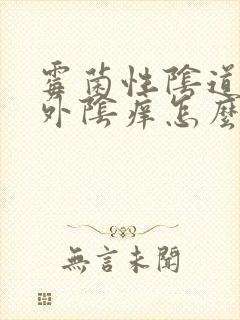 霉菌性陰道
外陰痒怎麼
無言未聞